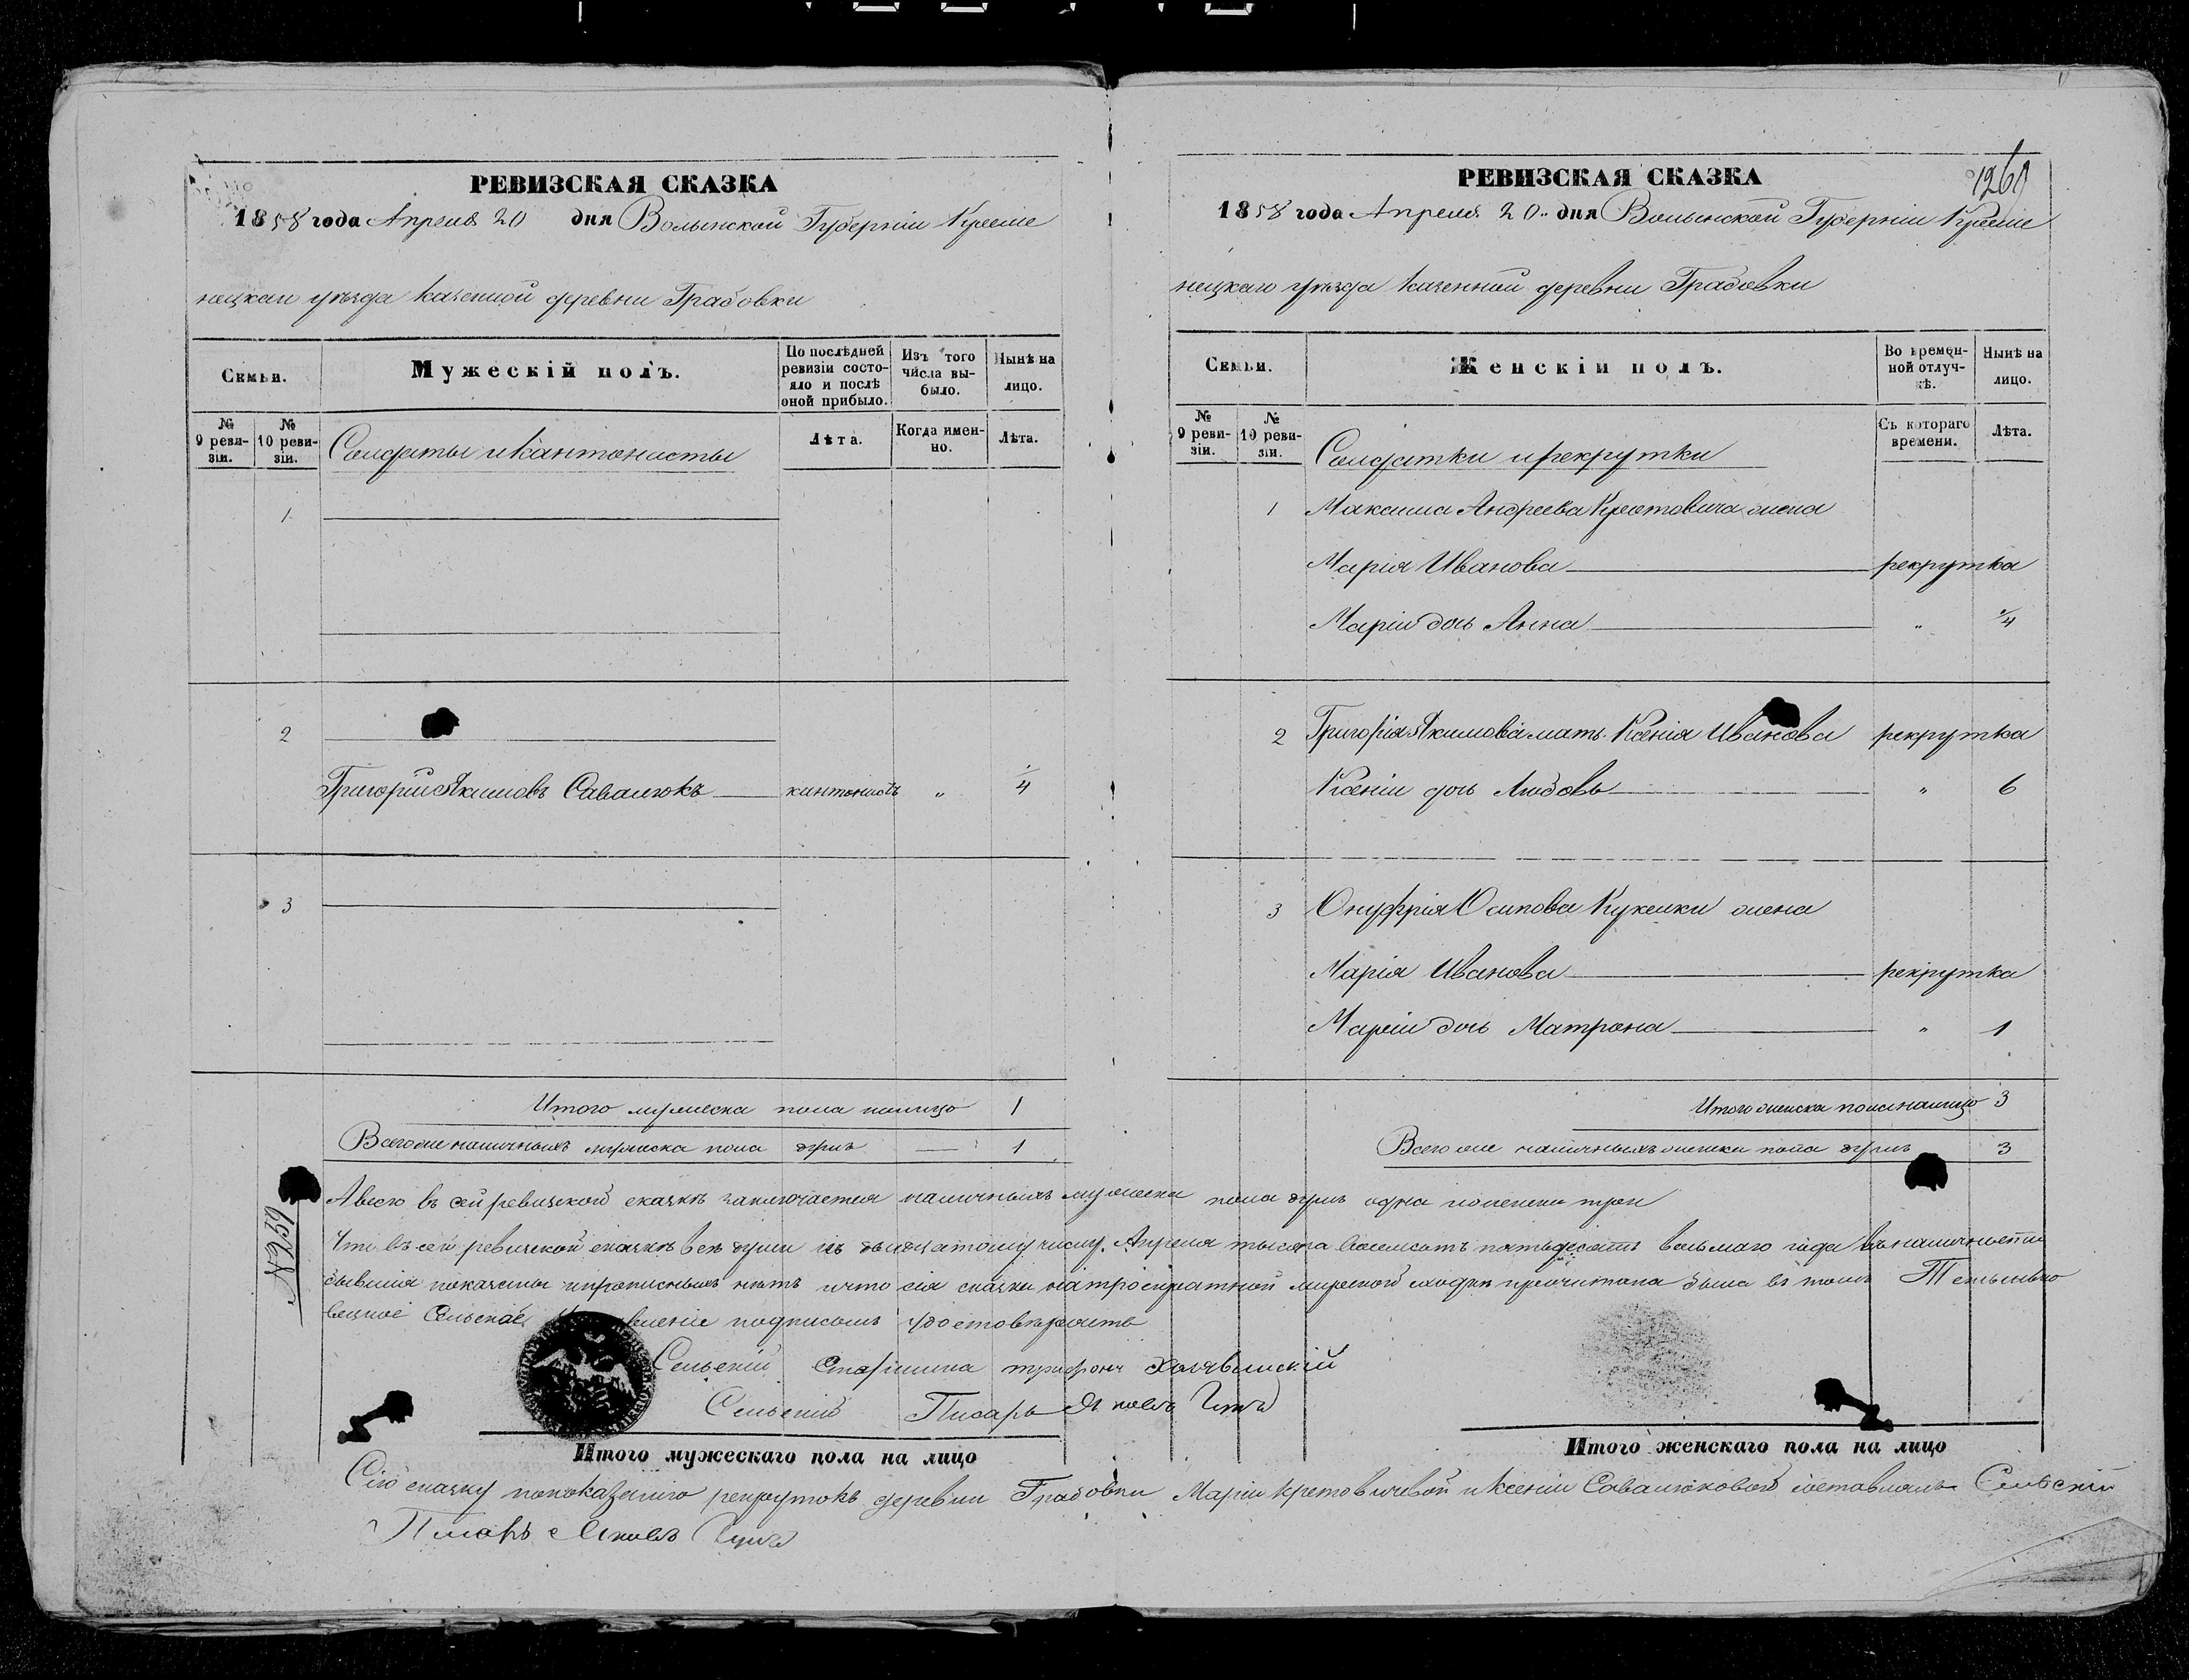 РЕВИЗСКАЯ СКАЗКА
1858 года Апреля 20 дня Волынской Губерніи Креме
нецкаго уѣзда казенной деревни Грабовки
Семьи.
Мужескій полъ.
По послѣдней ревизіи состояло и послѣ оной прибыло.
Изъ того числа выбыло.
Нынѣ на лицо.
№ 9 ревизіи.
№ 10 ревизіи.
Солдаты и кантонисты
Лѣта.
Когда именно.
Лѣта.
1
2
Григорій Якимовъ Савалюкъ кантонистъ " 1/4
3
Итого мужеска пола налицо 1
Всего же наличныхъ мужеска пола душъ — 1
РЕВИЗСКАЯ СКАЗКА
1858 года Апреля 20 дня Волынской Губерніи Креме
нецкаго уѣзда казенной деревни Грабовки
Семьи.
Женскій полъ.
Во временной отлучкѣ.
Нынѣ на лицо.
№ 9 ревизіи.
№ 10 ревизіи.
Солдатки и рекрутки
Съ котораго времени.
Лѣта.
1 Максима Андреева Кретовича жена
Марія Иванова рекрутка
Маріи дочь Анна "
2 Григорія Якимова мать Ксенія Иванова рекрутка
Ксеніи дочь Любовь " 6
3 Онуфрія Осипова Кукелки жена
Марія Иванова рекрутка
Маріи дочь Матрона " 1
Итого женска пола налицо 3
Всего же наличныхъ женска пола душъ 3
А всего въ сей ревизской сказкѣ заключается наличныхъ мужеска пола душъ одна и женска три
Что въ сей ревизской сказкѣ всѣ души къ двадцатому числу Апреля тысяча восемсотъ пятьдесятъ восьмаго года въ наличности
бывшія показаны и прописныхъ нѣтъ и что сія сказка на троекратной мирской сходкѣ прочитана была въ томъ
Сельское подписомъ удостовѣряетъ
Сельскій Старшина Трифонъ
Сельскій Писарь Яковъ
Итого мужескаго пола на лицо
Итого женскаго пола на лицо
Сію сказку по показанію рекрутокъ деревни Грабовки Маріи Кретовичевой и Ксеніи Савалюковой составлялъ Сельскій
Писарь Яковъ